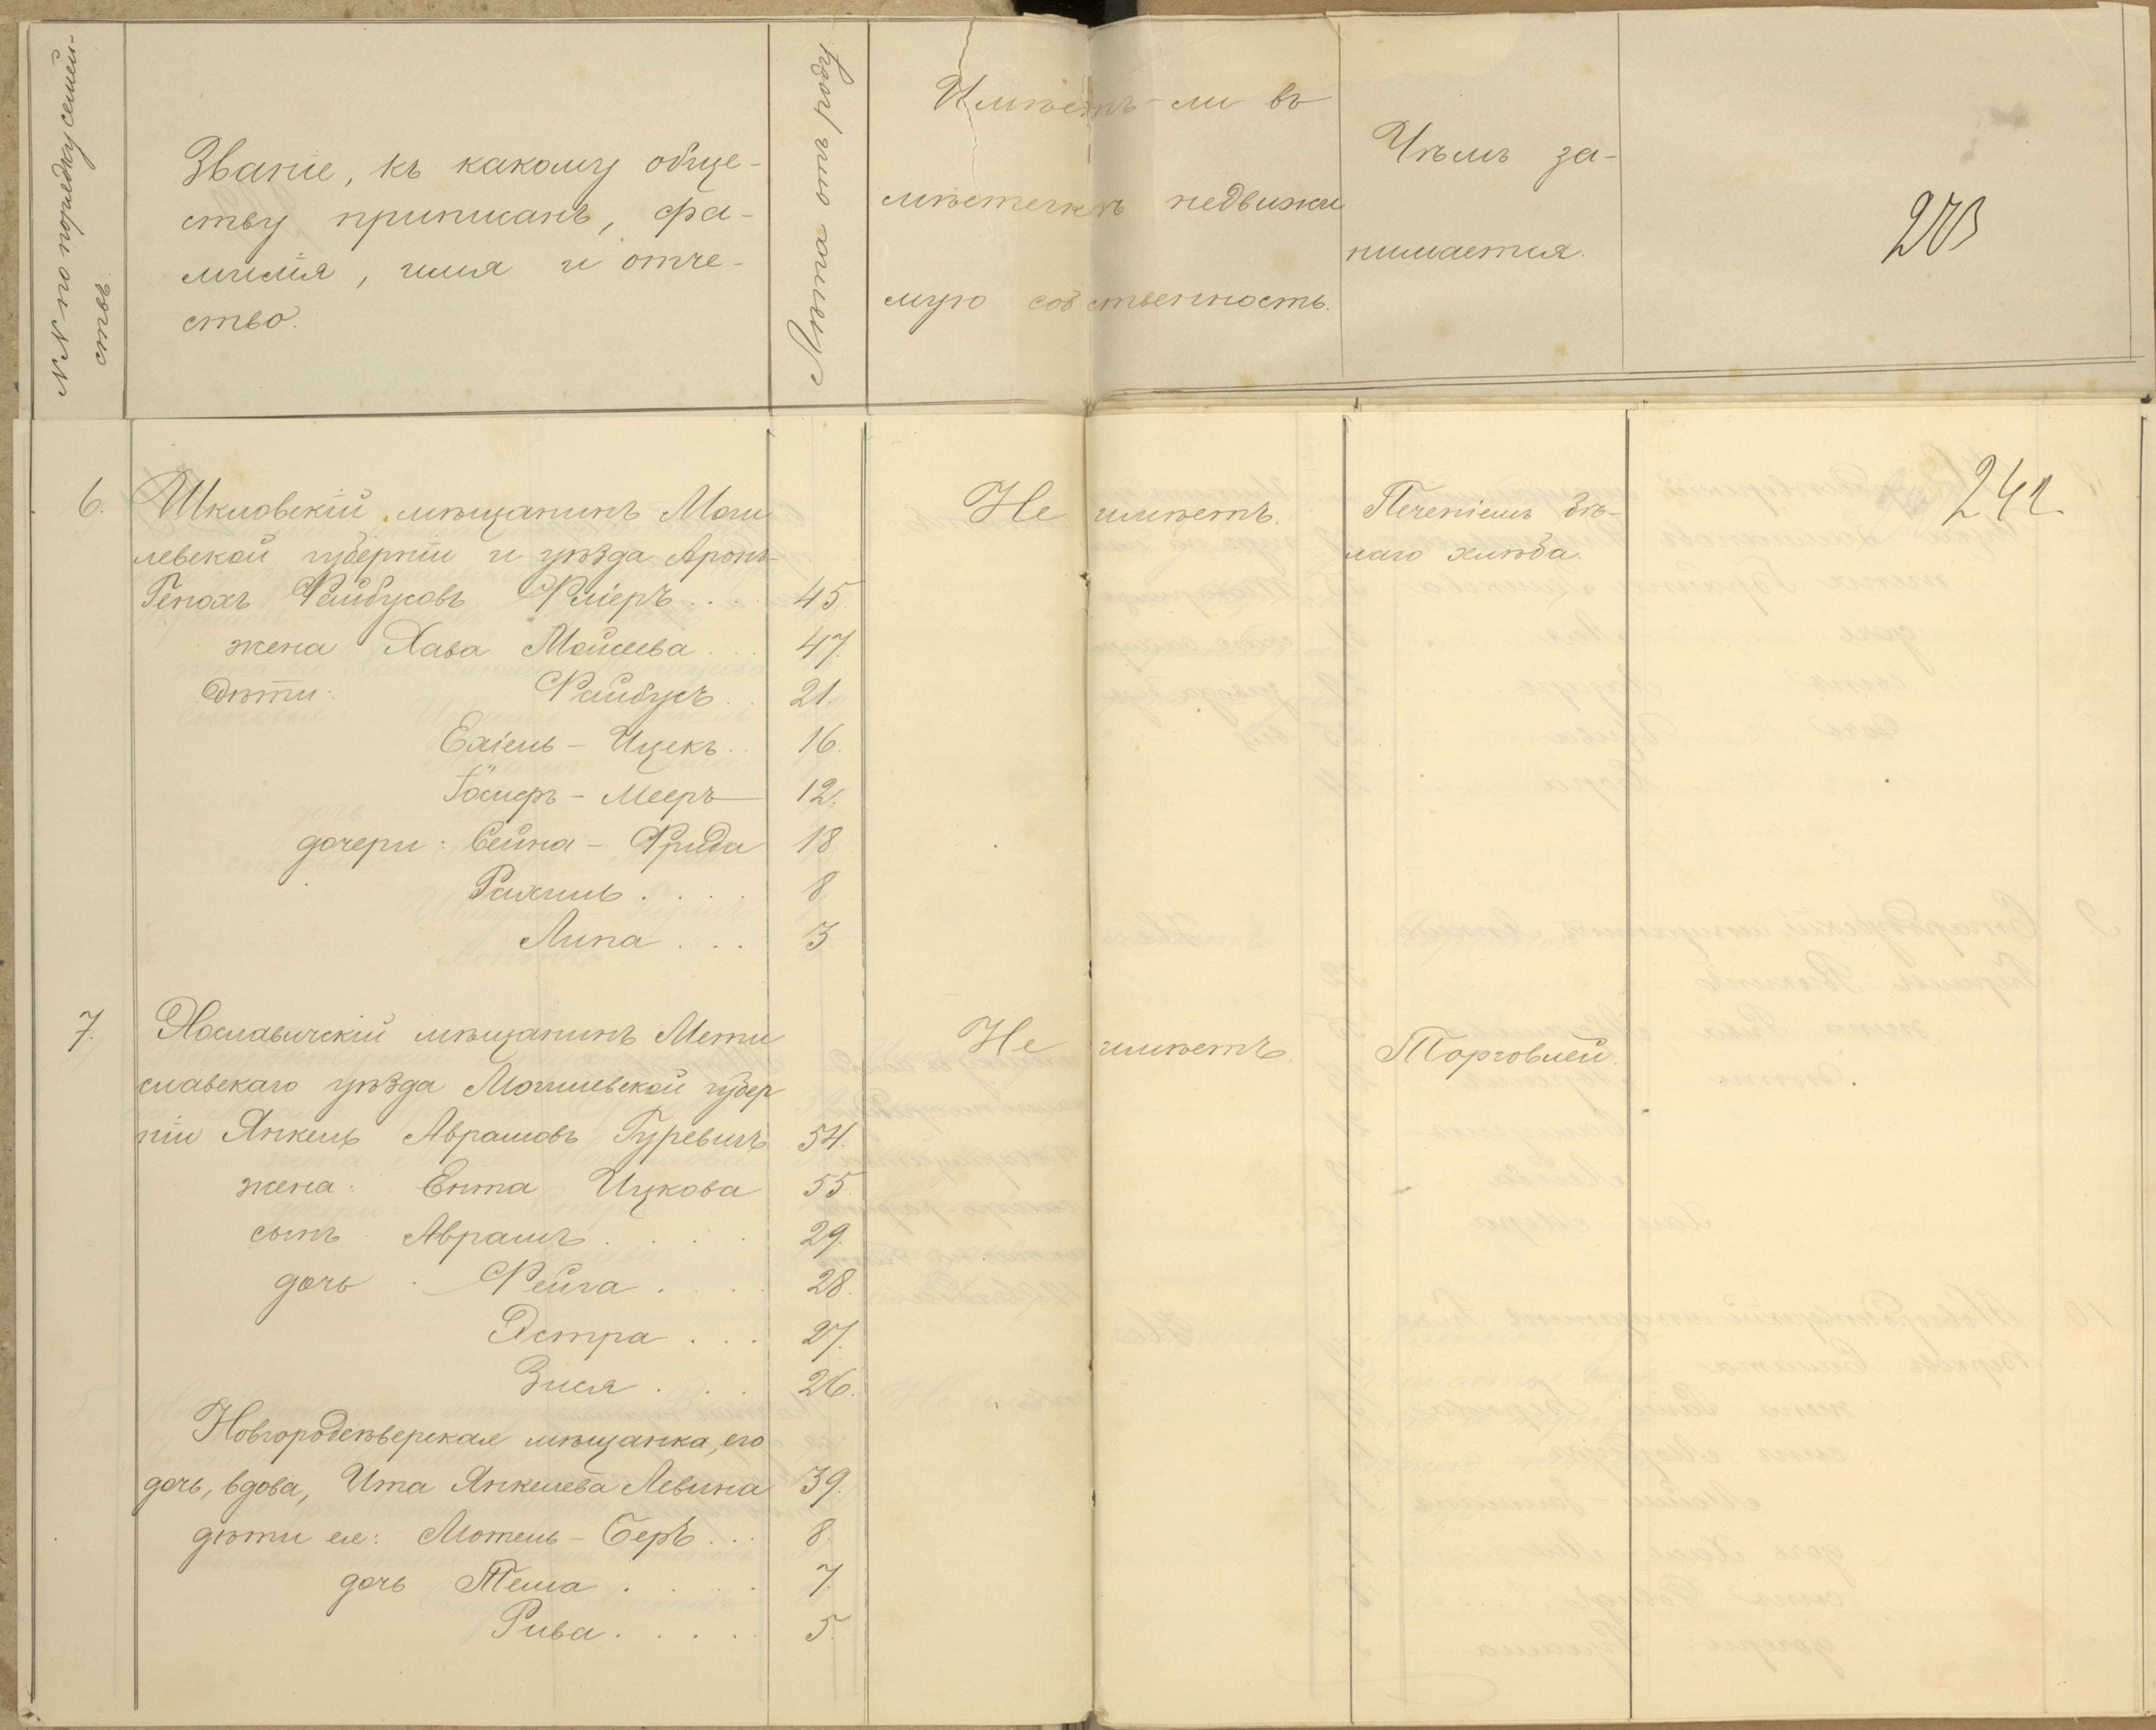 №№ по порядку семей-
ствъ.
Званіе, къ какому обще-
ству приписанъ, фа-
милія, имя и отче-
ство.
Лѣта отъ роду
Имѣетъ-ли въ
мѣстечкѣ недвижи
мую собственность.
Чѣмъ за-
нимается.
203
242
6. Шкловскій мѣщанинъ Моги
левской губерніи и уѣзда Аронъ-
Генохъ Файбусовъ 45.
жена Хава Мойсеева . . . 47.
Дѣти: Файбусъ . . 21.
Ехіель - Ицекъ . . 16.
Іосифъ - Мееръ 12.
дочери: Сейна - Фрида 18
Рахиль . . . . 8.
Липа . . . 3.
Не имѣетъ.
Печеніемъ бѣ-
лаго хлѣба.
7. Хославичскій мѣщанинъ Мсти
славскаго уѣзда Могилевской губер
ніи Янкель Аврамовъ Гуревичъ 54.
жена: Ента Ицкова 55.
сынъ Абрамъ . . . . 29.
дочь Фейга . . . . 28.
Эстра . . . 27.
Зися . . . 26.
Не имѣетъ.
Торговлей.
Новгородсѣверская мѣщанка, его
дочь, вдова, Ита Янкелева Левина 39.
дѣти ея: Мотель - Беръ . . . 8.
дочь Теша . . . . 7.
Рива . . . . . 5.